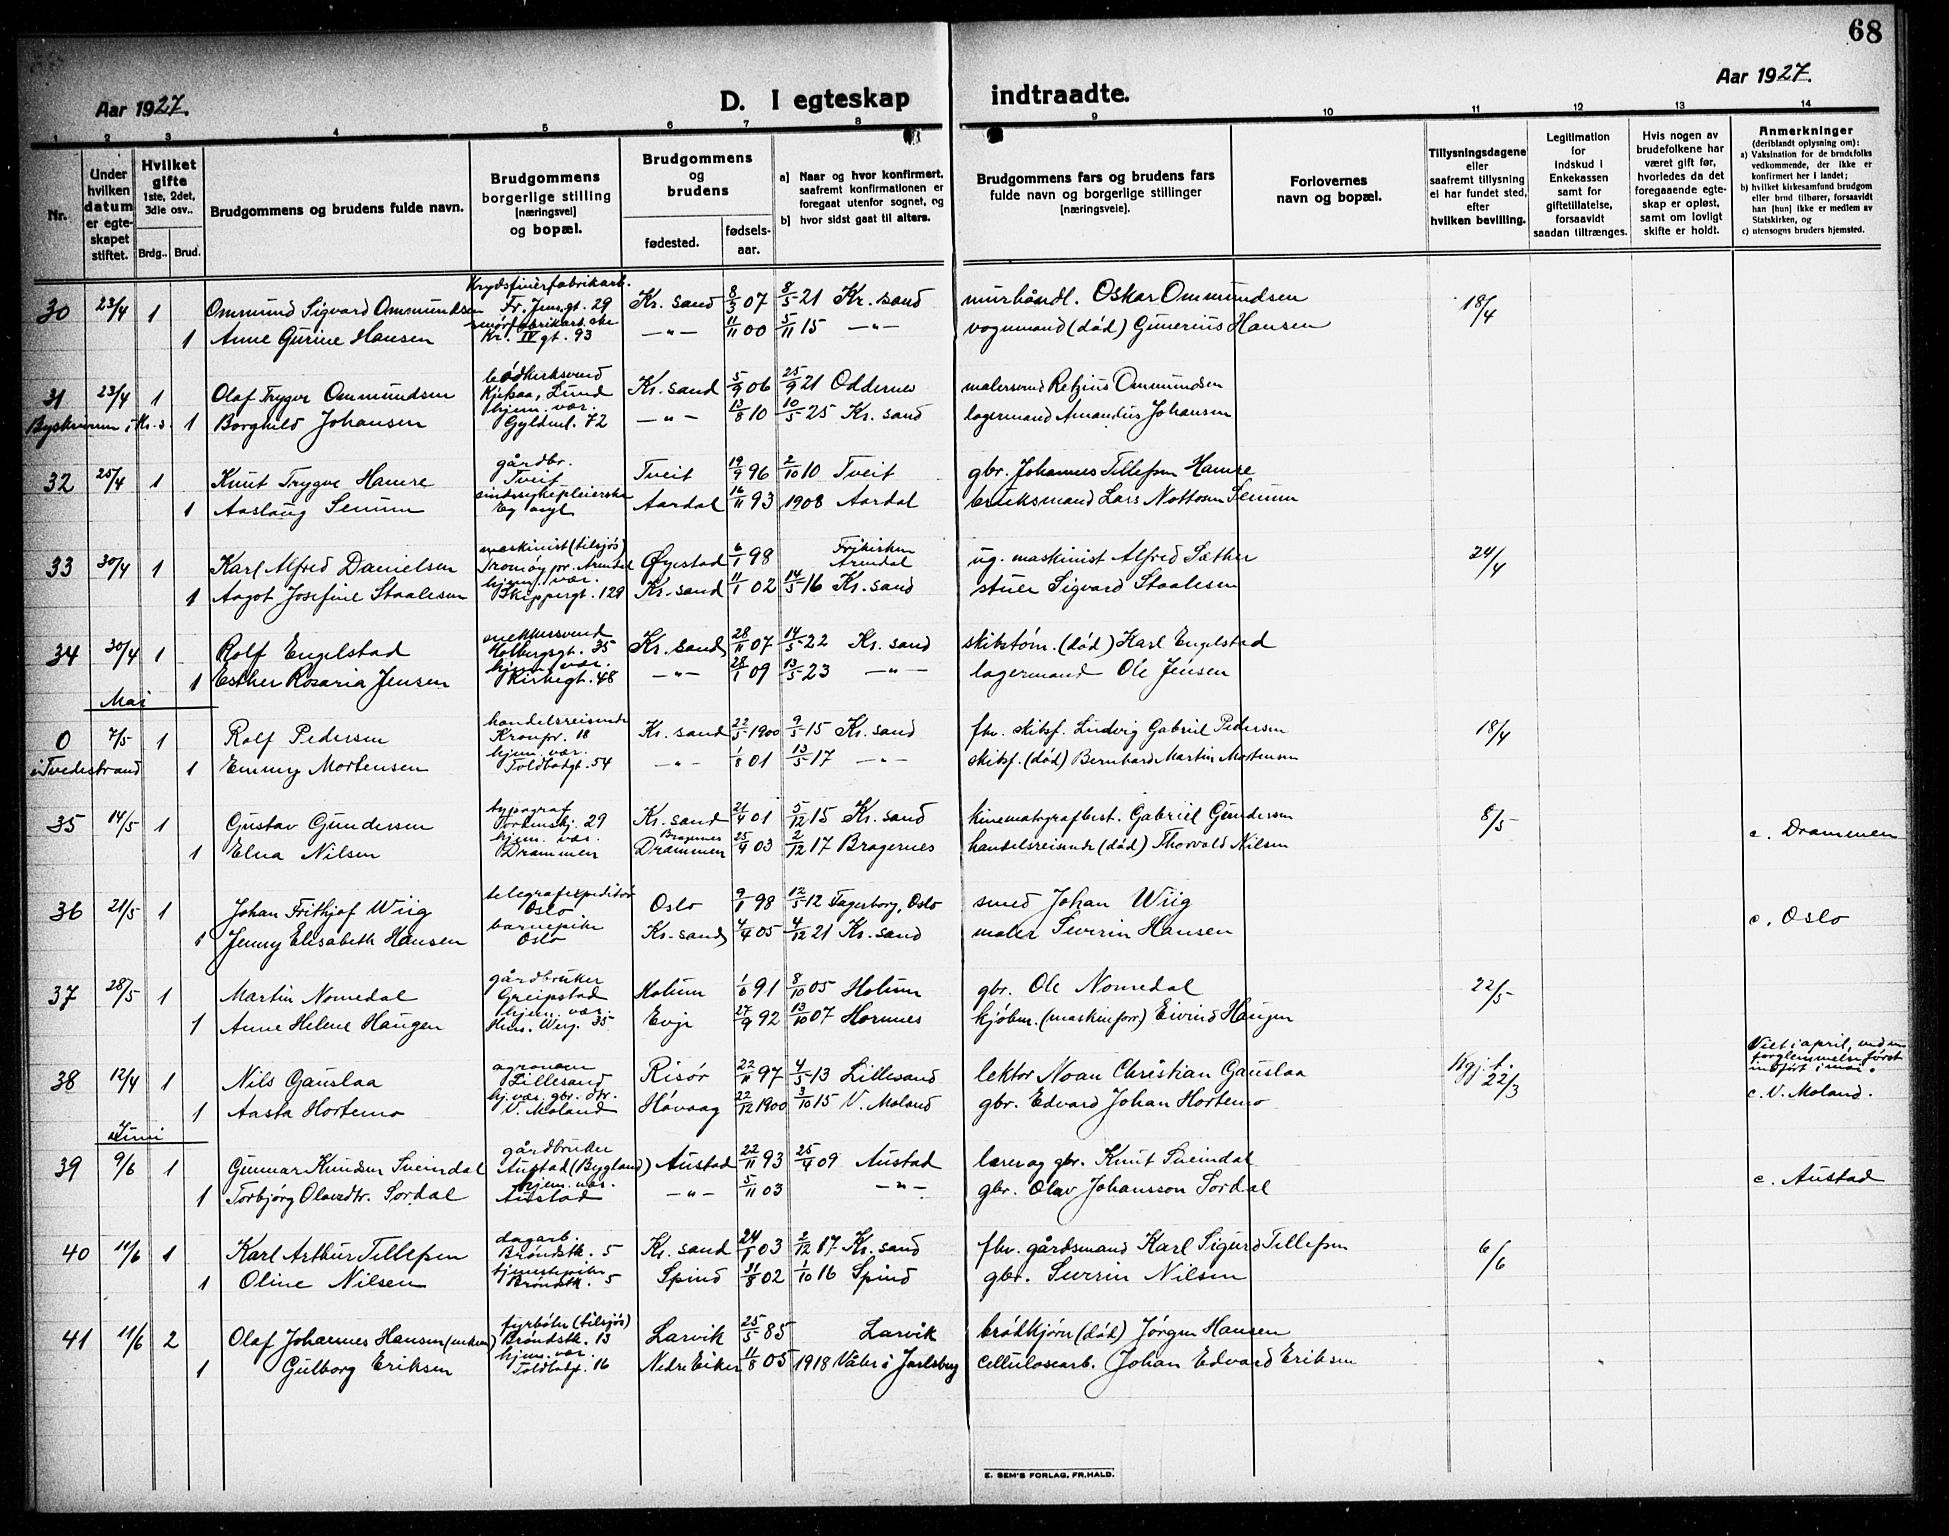 68
Aar 1927.
D. I egteskap
indtraadte.
Aar 1927.
1 2 3 4 5 6 7 8 9 10 11 12 13 14
Nr.
Under hvilken datum er egte-skapet stiftet.
Hvilket gifte 1ste, 2det, 3die osv..
Brdg.. Brud.
Brudgommens og brudens fulde navn.
Brudgommens borgerlige stilling [næringsvei] og bopæl.
Brudgommens og brudens
fødested. fødsels-aar.
a) Naar og hvor konfirmert, saafremt konfirmationen er foregaat utenfor sognet, og
b) hvor sidst gaat til alters.
Brudgommens fars og brudens fars fulde navn og borgerlige stillinger [næringsveie].
Forlovernes navn og bopæl.
Tillysningsdagene eller saafremt tillysning ei har fundet sted, efter hvilken bevilling.
Legitimation for indskud i Enkekassen samt for giftetillatelse, forsaavidt saadan tiltrænges.
Hvis nogen av brudefolkene har været gift før, hvorledes da det foregaaende egte-skap er opløst, samt om lovligt skifte er holdt.
Anmerkninger (deriblandt oplysning om):
a) Vaksination for de brudefolks vedkommende, der ikke er konfirmert her i landet;
b) hvilket kirkesamfund brudgom eller brud tilhører, forsaavidt han [hun] ikke er medlem av Statskirken, og
c) utensogns bruders hjemsted.
30 23/4 1 Ommund Sigvard Ommundsen Krydsfinerfabrikarb. Fr. Jensgt. 29 Kr. sand 8/3 07 8/5 21 Kr. sand murhåndl. Oskar Ommundsen 18/4
1 Anne Gurine Hansen smørfabrikarb.ske Kr. IV gt. 93 —"— 11/11 00 5/11 15 —"— vognmand (død) Gunerius Hansen
31 23/4 1 Olaf Trygve Ommundsen Lund Kr. sand 5/9 06 25/9 21 Oddernes malersvend Retzius Ommundsen
i Kr. s. 1 Borghild Johansen hjem. vær. Gyldenl. 72 —"— 13/8 10 10/5 25 Kr. sand lagermand Amandus Johansen
32 25/4 1 Knut Trygve Hamre gårdbr. Tveit Tveit 19/9 96 2/10 10 Tveit gbr. Johannes Tellefsen Hamre
1 Aaslaug Senum sindssykepleierske Eg asyl Aardal 16/11 93 1908 Aardal bruksmand Lars Nottosen Senum
33 30/4 1 Karl Alfred Danielsen maskinist (tilsjøs) Tromøy pr. Arendal Øyestad 6/1 98 Frikirken Arendal ug. maskinist Alfred Sæther 24/4
1 Aagot Josefine Staalesen hjem. vær. Skippergt. 129 Kr. sand 11/1 02 14/5 16 Kr. sand stuer Sigvard Staalesen
34 30/4 1 Rolf Engelstad snekkersvend Holbergsgt. 35 Kr. sand 28/11 07 14/5 22 Kr. sand skibstøm. (død) Karl Engelstad
1 Esther Rosaria Jensen hjem. vær. Kirkegt. 48 —"— 28/1 09 13/5 23 —"— lagermand Ole Jensen
Mai
0 7/5 1 Rolf Pedersen handelsreisende Kronpr. 18 Kr. sand 22/5 1900 9/5 15 Kr. sand fhv. skibsf. Ludvig Gabriel Pedersen 18/4
i Tvedestrand 1 Emmy Mortensen hjem. vær. Toldbodgt. 54 —"— 1/8 01 13/5 17 —"— skibsf. (død) Bernhard Martin Mortensen
35 14/5 1 Gustav Gundersen typograf 29 Kr. sand 21/4 01 5/12 15 Kr. sand kinematografbest. Gabriel Gundersen 8/5
1 Elna Nilsen hjem. vær. Drammen Bragernes Drammen 25/4 03 2/12 17 Bragernes handelsreisende (død) Thorvald Nilsen c. Drammen
36 21/5 1 Johan Frithjof Wiig telegrafexpeditør Oslo Oslo 9/1 98 12/5 12 Fagerborg, Oslo smed Johan Wiig
1 Jenny Elisabeth Hansen barnepike Oslo Kr. sand 4/4 05 4/12 21 Kr. sand maler Severin Hansen c. Oslo
37 28/5 1 Martin Nomedal gårdbruker Greipstad Holum 1/6 91 8/10 05 Holum gbr. Ole Nomedal 22/5
1 Anne Helene Haugen hjem. vær. 35 Evje 27/9 92 13/10 07 Hornnes kjøbm. (maskinforr) Eivind Haugen
38 12/4 1 Nils Gauslaa agronom Lillesand Risør 22/11 97 4/5 13 Lillesand lektor Noan Christian Gauslaa Kgj. f. 22/3 Viet i april, ved en forglemmelse først indført i mai.
1 Aasta Hortemo hj. vær. gbr. dtr. V. Moland Høvaag 22/12 1900 3/10 15 V. Moland gbr. Edvard Johan Hortemo c. V. Moland.
Juni
39 9/6 1 Gunnar Knudsen Sveindal gårdbruker Austad (Bygland) Austad 22/11 93 25/4 09 Austad lærer og gbr. Knut Sveindal
1 Torbjørg Olavsdtr. Sordal hjem. vær. Austad —"— 5/11 03 —"— gbr. Olav Johansson Sordal c. Austad
40 11/6 1 Karl Arthur Tellefsen dagarb. Brøndstk. 5 Kr. sand 24/1 03 2/12 17 Kr. sand fhv. gårdsmand Karl Sigurd Tellefsen 6/6
1 Oline Nilsen tjenestepike Brøndstk. 5 Spind 31/8 02 1/10 16 Spind gbr. Severin Nilsen
41 11/6 2 Olaf Johannes Hansen (enkem) fyrbøter (tilsjøs) Brøndstk. 13 Larvik 25/5 85 Larvik brødkjører (død) Jørgen Hansen
1 Gulborg Eriksen hjem. vær. Toldbodg. 16 Nedre Eiker 11/8 05 1918 Våler i Jarlsberg cellulosearb. Johan Edvard Eriksen
E. SEM'S FORLAG, FR.HALD.